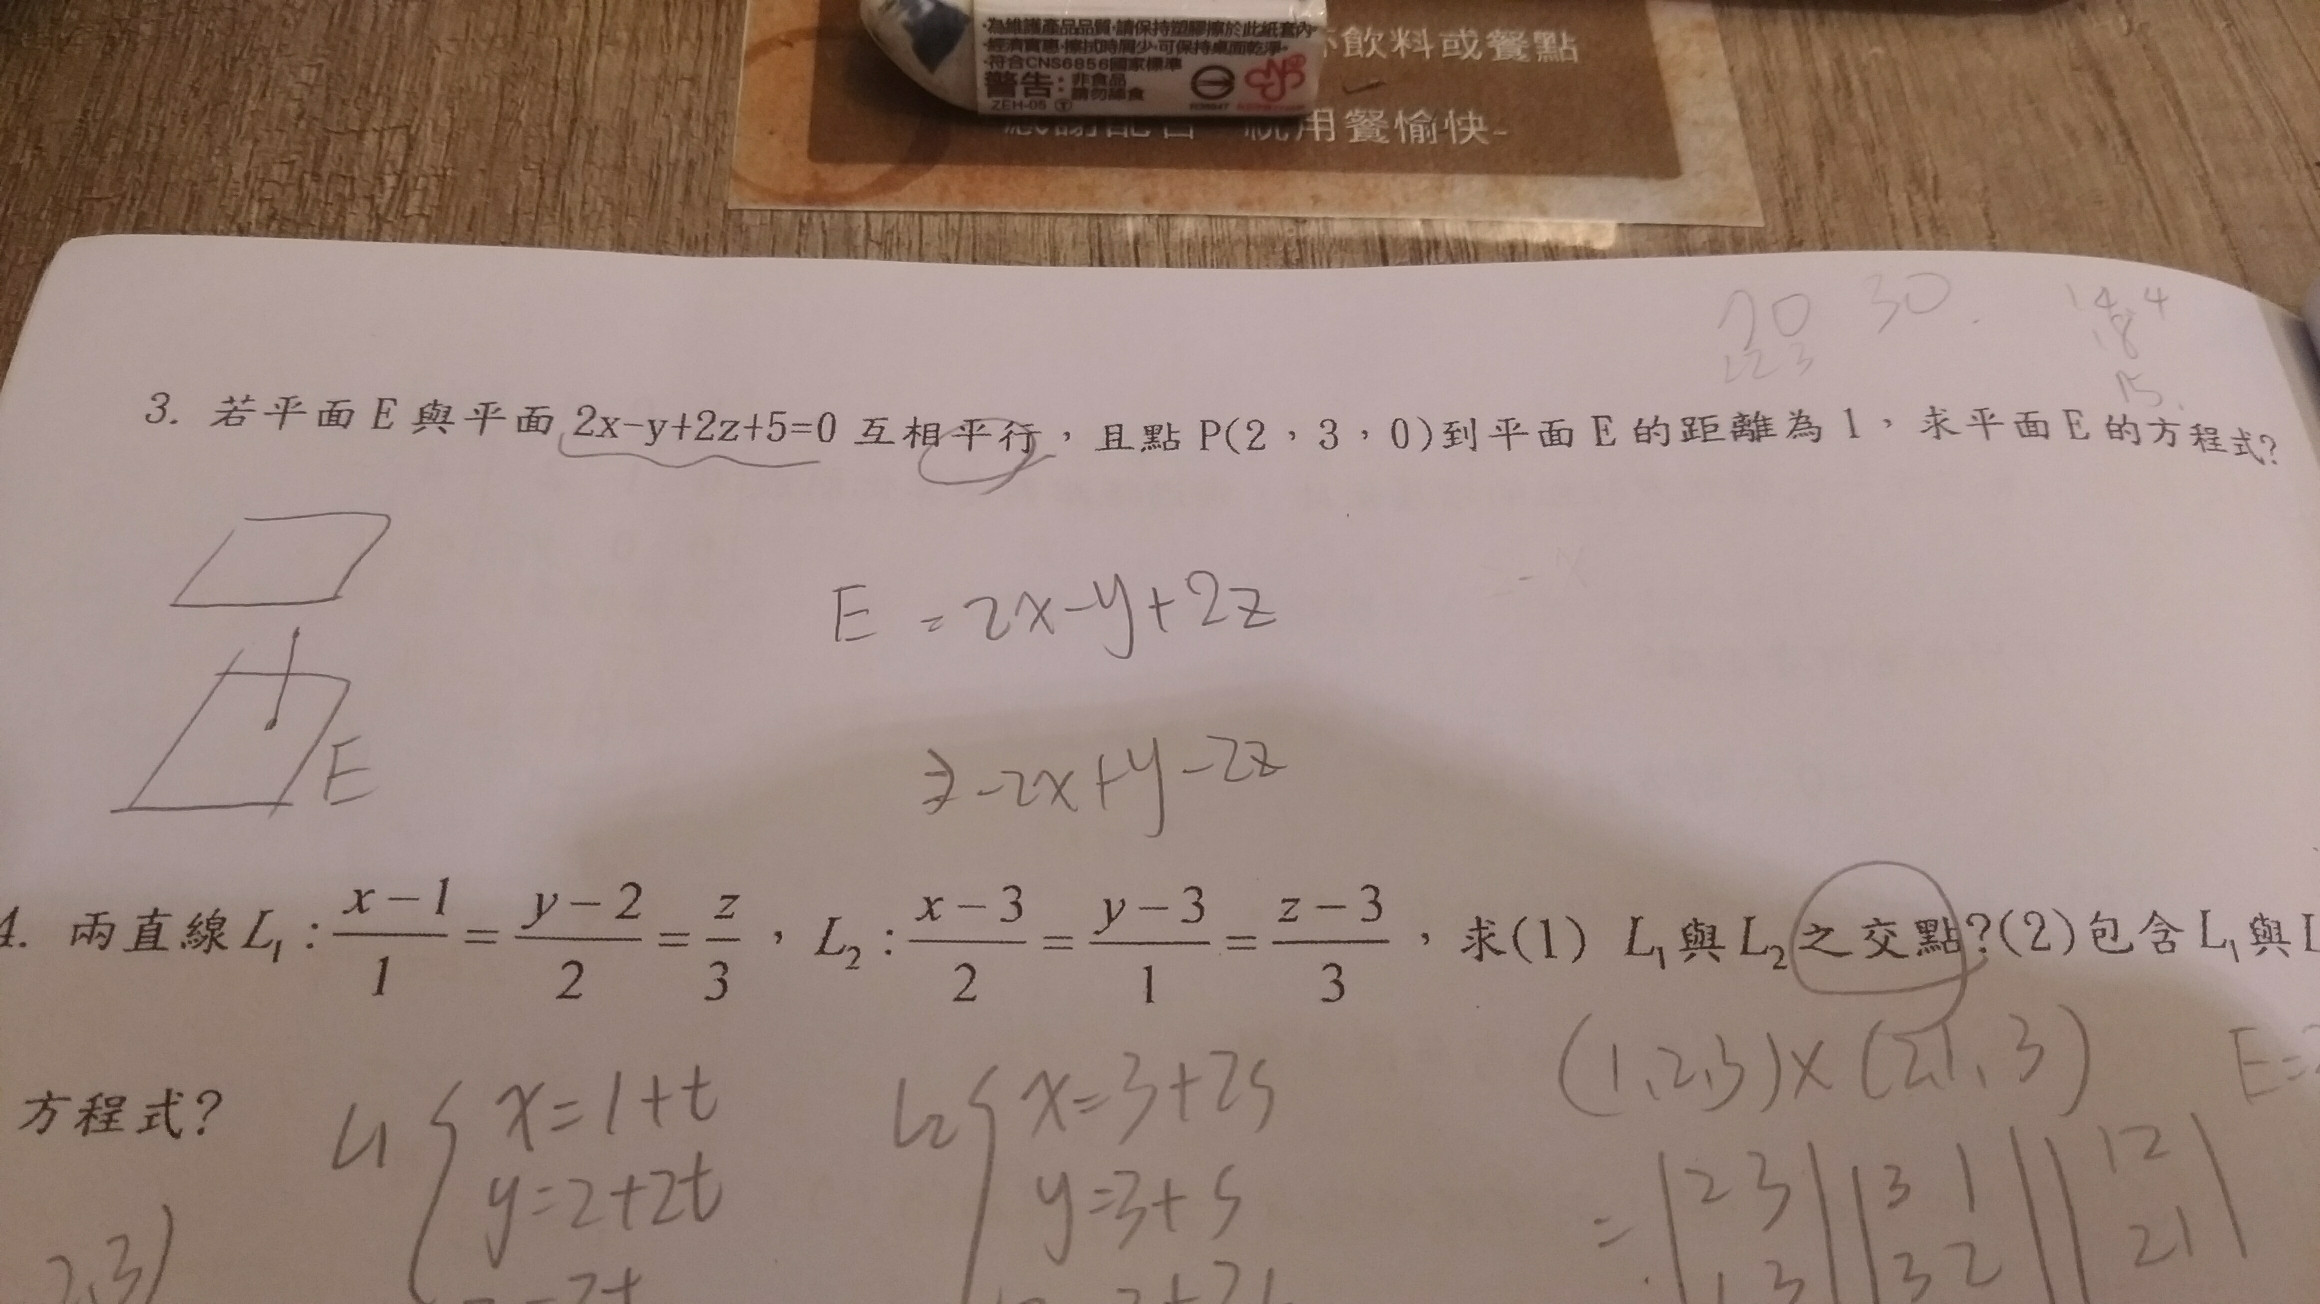 ·為維護產品品質,請保持塑膠擦於此紙套內·
·經濟實惠·擦拭時屑少·可保持桌面乾淨。
·符合CNS6856國家標準
警告:非食品
請勿舔食
ZEH-05
飲料或餐點
用餐愉快~
20 30
123
14.4
18
15.
3. 若平面E與平面 2x-y+2z+5=0 互相平行,且點P(2,3,0)到平面E的距離為1,求平面E的方程式?
E = 2x-y+2z
-2x+y-2z
E
4. 兩直線L₁:(x-1)/1=(y-2)/2=z/3,L₂:(x-3)/2=(y-3)/1=(z-3)/3,求(1) L₁與L₂之交點?(2)包含L₁與L
方程式?
(1,2,3)×(2,1,3) E=
L1 { x=1+t
y=2+2t
L2 { x=3+2s
y=3+s
= |2 3| |3 1| |1 2|
1 3 3 2 2 1
2,3)